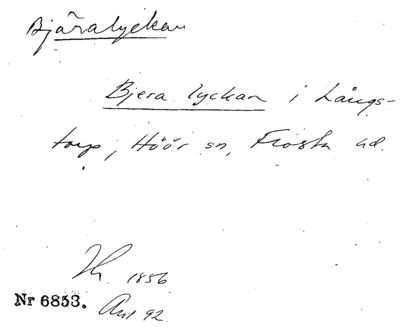 Bjäralyckan
Bjera lyckan i Långs-
torp, Höör sn, Frosta hd.
1856
Nr 6853. Ant 92